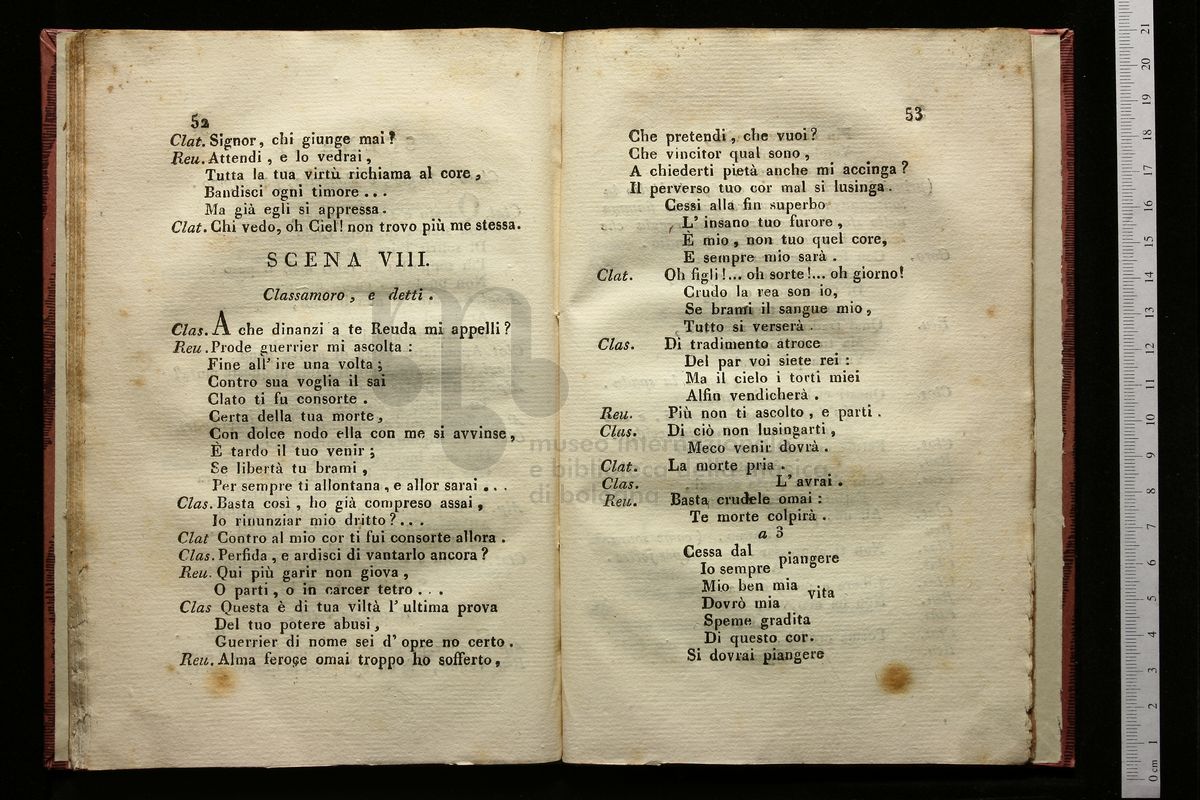 52
Clat. Signor, chi giunge mai?
Reu. Attendi, e lo vedrai,
Tutta la tua virtù richiama al core,
Bandisci ogni timore...
Ma già egli si appressa.
Clat. Chi vedo, oh Ciel! non trovo più me stessa.
SCENA VIII.
Classamoro, e detti.
Clas. A che dinanzi a te Reuda mi appelli?
Reu. Prode guerrier mi ascolta:
Fine all' ire una volta;
Contro sua voglia il sai
Clato ti fu consorte.
Certa della tua morte,
Con dolce nodo ella con me si avvinse,
È tardo il tuo venir;
Se libertà tu brami,
Per sempre ti allontana, e allor sarai...
Clas. Basta così, ho già compreso assai,
Io rinunziar mio dritto?...
Clat Contro al mio cor ti fui consorte allora.
Clas. Perfida, e ardisci di vantarlo ancora?
Reu. Qui più garir non giova,
O parti, o in carcer tetro...
Clas Questa è di tua viltà l' ultima prova
Del tuo potere abusi,
Guerrier di nome sei d' opre no certo.
Reu. Alma feroce omai troppo ho sofferto,
53
Che pretendi, che vuoi?
Che vincitor qual sono,
A chiederti pietà anche mi accinga?
Il perverso tuo cor mal si lusinga.
Cessi alla fin superbo
L' insano tuo furore,
È mio, non tuo quel core,
E sempre mio sarà.
Clat. Oh figli!... oh sorte!... oh giorno!
Crudo la rea son io,
Se brami il sangue mio,
Tutto si verserà.
Clas. Di tradimento atroce
Del par voi siete rei:
Ma il cielo i torti miei
Alfin vendicherà.
Reu. Più non ti ascolto, e parti.
Clas. Di ciò non lusingarti,
Meco venir dovrà.
Clat. La morte pria.
Clas. L' avrai.
Reu. Basta crudele omai:
Te morte colpirà.
a 3
Cessa dal
Io sempre piangere
Mio ben mia
Dovrò mia vita
Speme gradita
Di questo cor.
Si dovrai piangere
museo internazionale
e biblioteca della musica
di bologna
0 cm 1 2 3 4 5 6 7 8 9 10 11 12 13 14 15 16 17 18 19 20 21